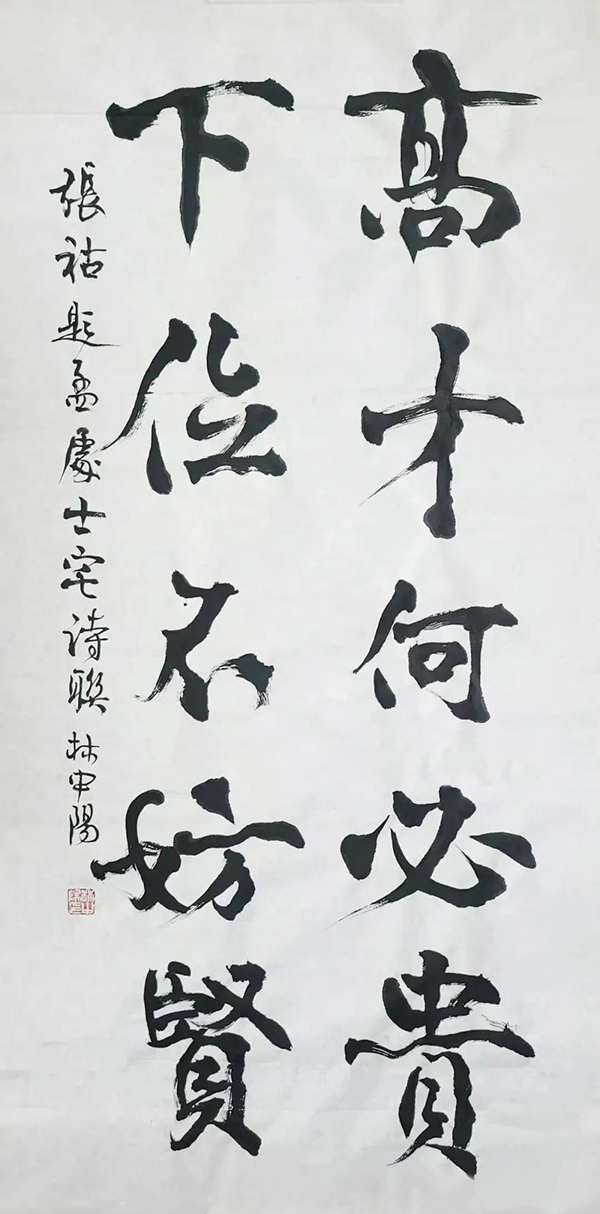 高才何必貴
下位不妨賢
張祜題孟處士宅詩聯 林中陽